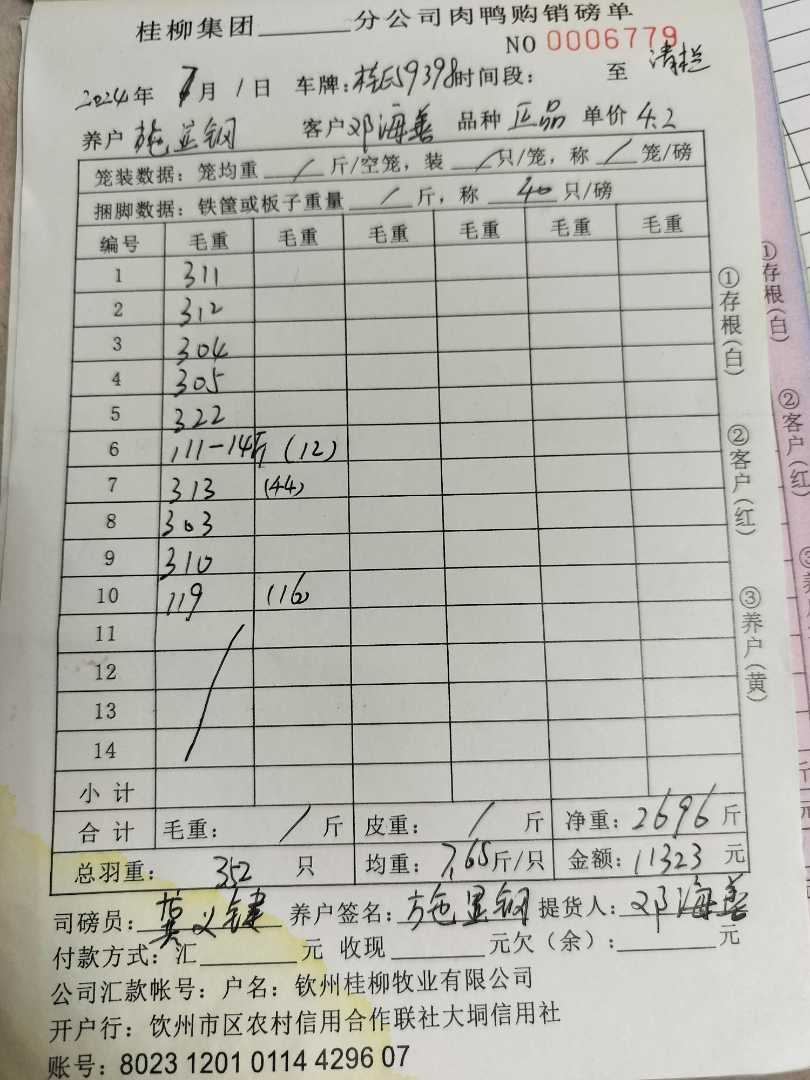 桂柳集团______分公司肉鸭购销磅单
NO 0006779
2024年 7月 1日 车牌:桂E59398 时间段: 至 清栏
养户 施显钢 客户 邓海善 品种 正品 单价 4.2
笼装数据:笼均重 / 斤/空笼,装 / 只/笼,称 / 笼/磅
捆脚数据:铁筐或板子重量 / 斤,称 40 只/磅
编号 毛重 毛重 毛重 毛重 毛重 毛重
1 311
2 312
3 304
4 305
5 322
6 111-14斤 (12)
7 313 (44)
8 303
9 310
10 119 (16)
11
12
13
14
小计
合计 毛重: / 斤 皮重: / 斤 净重:2696斤
总羽重: 352 只 均重:7.65斤/只 金额:11323 元
司磅员:莫义键 养户签名:施显钢 提货人:邓海善
付款方式:汇______元 收现______元欠(余):______元
公司汇款帐号:户名:钦州桂柳牧业有限公司
开户行:饮州市区农村信用合作联社大垌信用社
账号:8023 1201 0114 4296 07
①存根(白)
②客户(红)
③养户(黄)
①存根(白)
②客户(红)